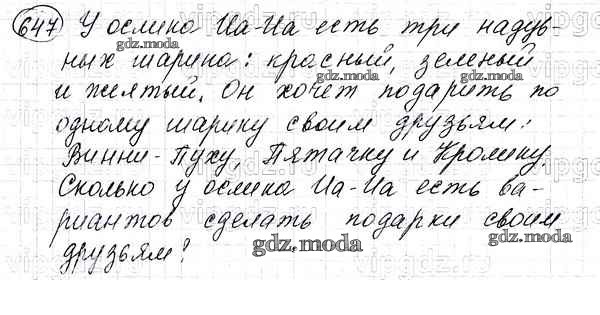 647 У ослика Иа-Иа есть три надув-
gdz.moda
ных шарика: красный, зеленый
gdz.moda gdz.moda
и желтый. Он хочет подарить по
одному шарику своим друзьям:
Винни-Пуху, Пятачку и Кролику.
Сколько у ослика Иа-Иа есть ва-
риантов сделать подарки своим
gdz.moda
друзьям?
gdz.moda